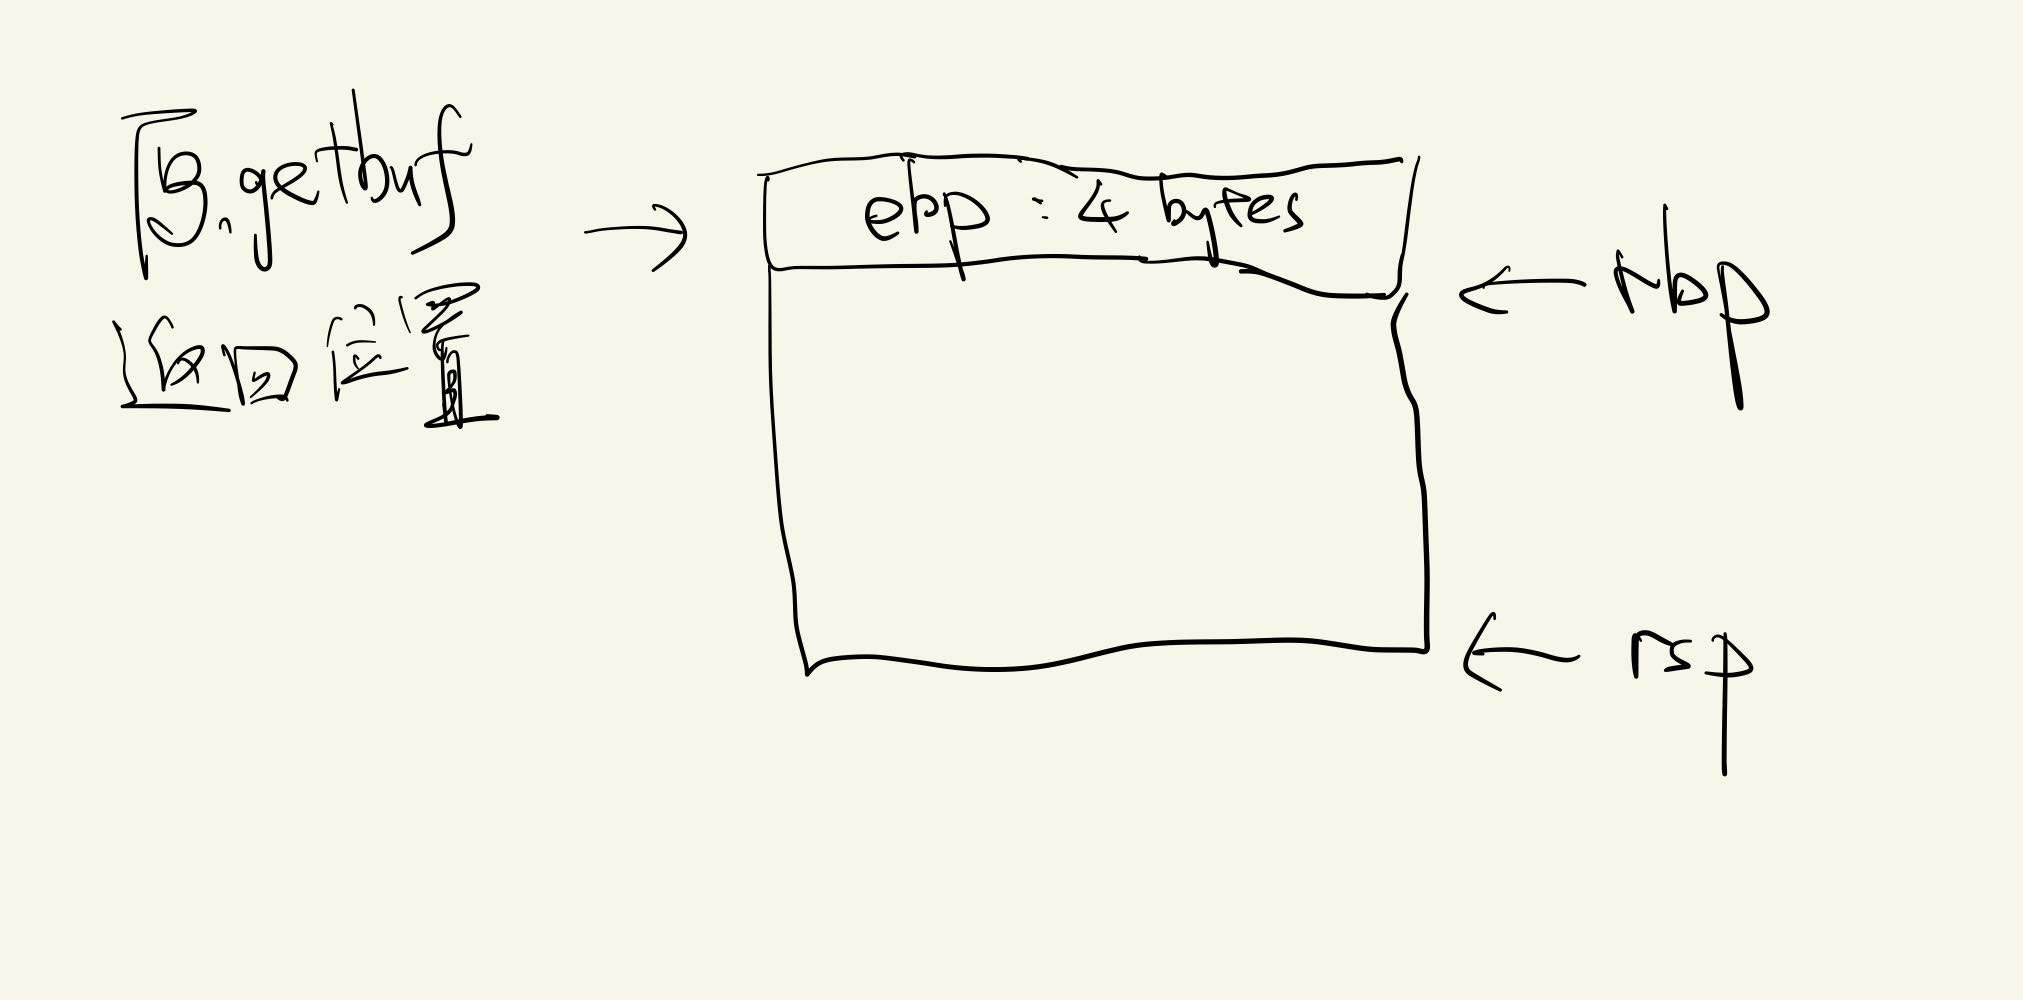 B.getbuf
返回位置
ebp : 4 bytes
rbp
rsp